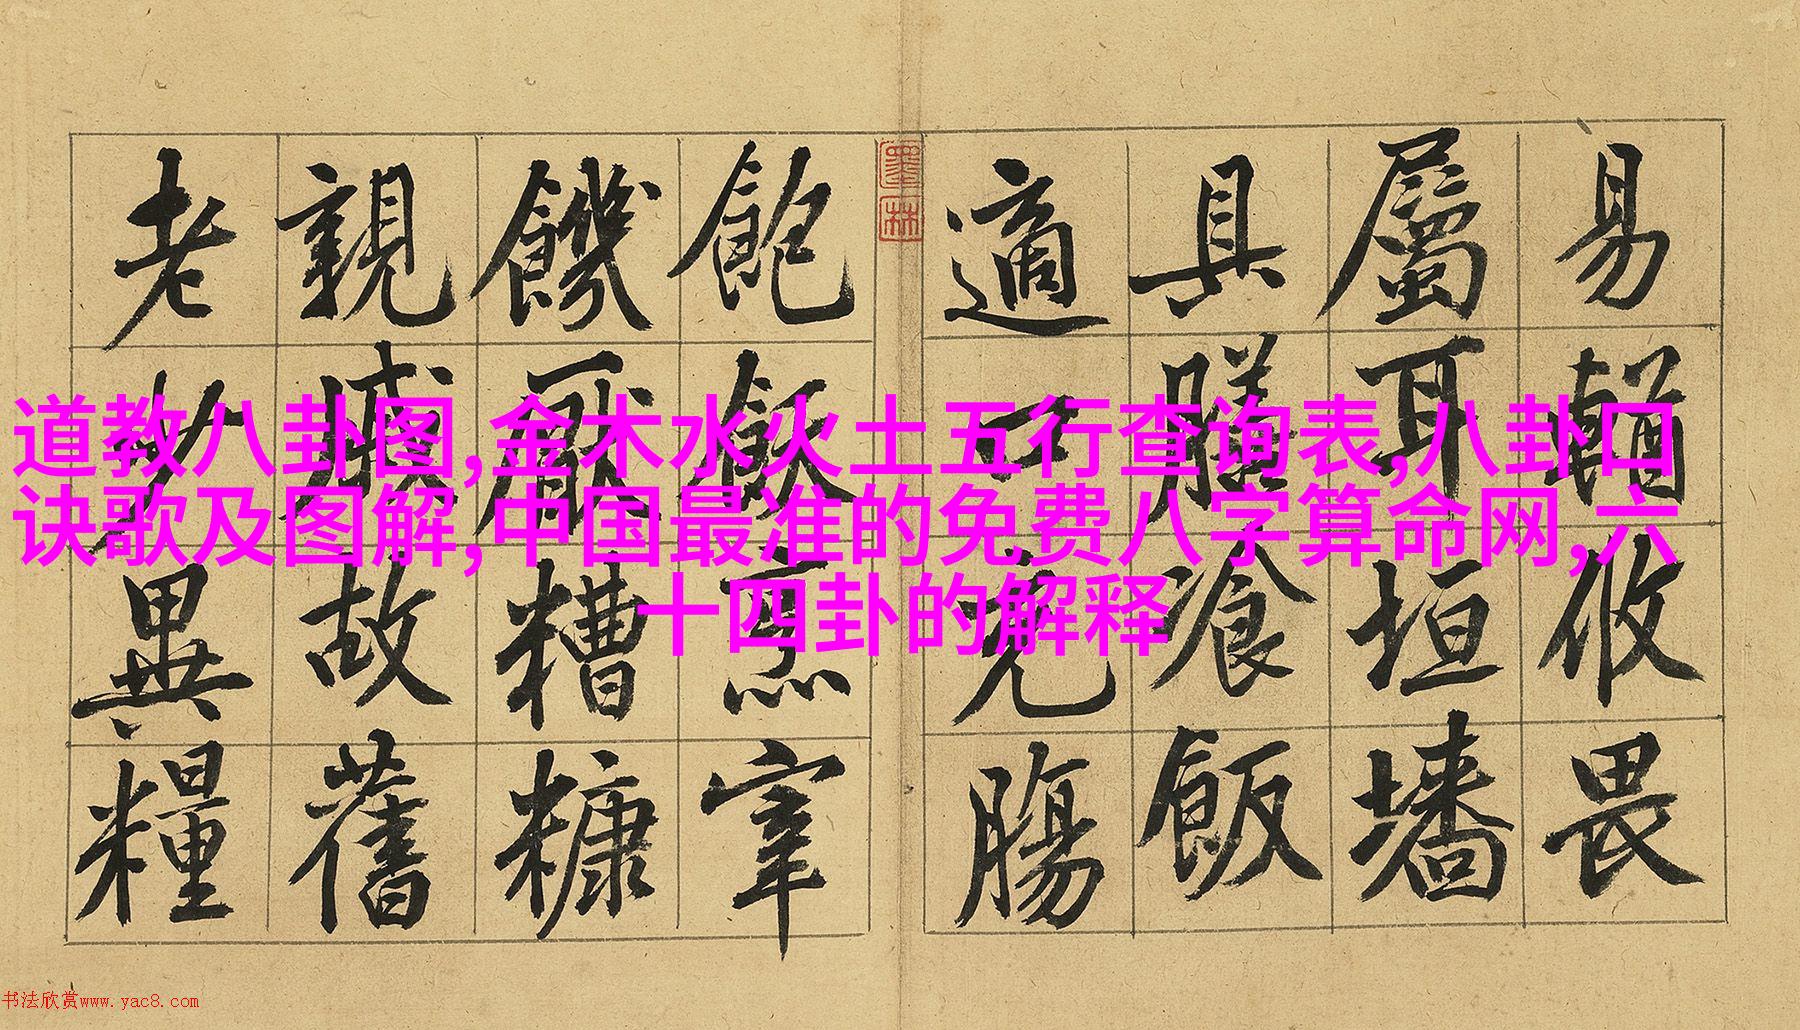 道教八卦图,金木水火土五行查询表,八卦口
诀歌及图解,中国最准的免费八字算命网,六
十四卦的解释
易輶攸畏
屬耳垣墻
具膳湌飯
適口充腸
墨林
飽飫烹宰
饑厭糟糠
親戚故舊
老少異糧
书法欣赏www.yac8.com